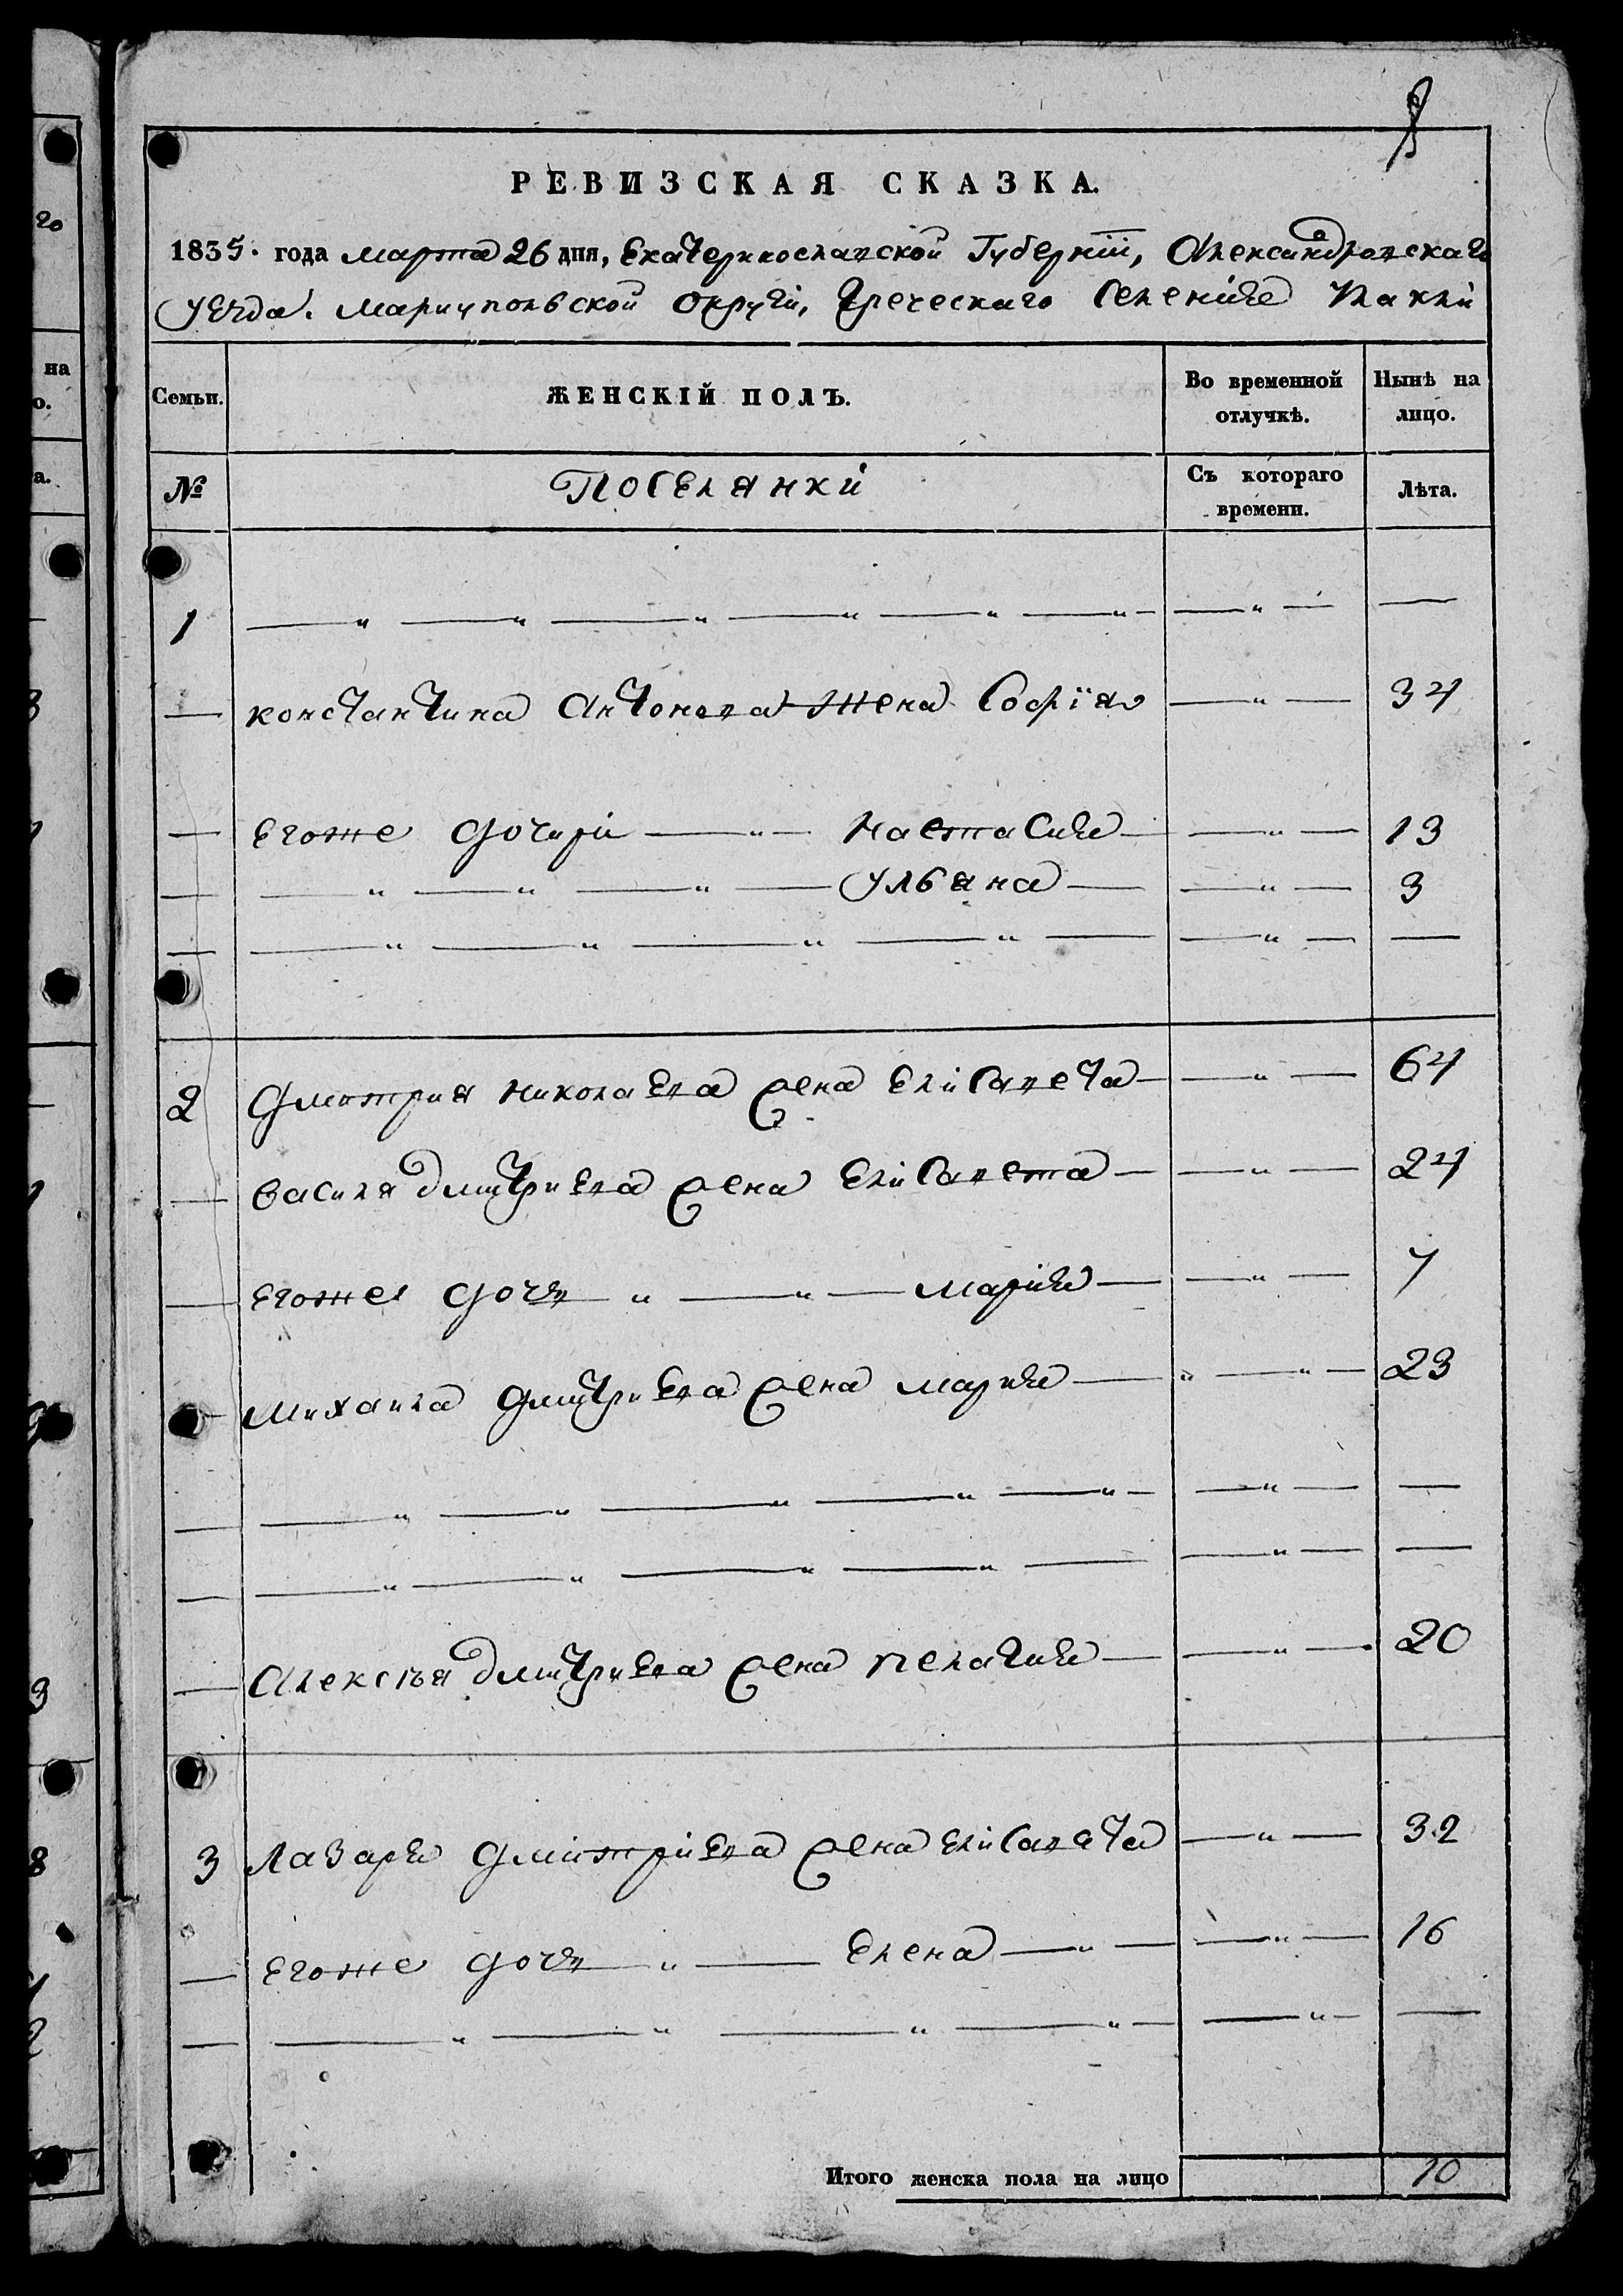 РЕВИЗСКАЯ СКАЗКА.
1835. года марта 26 дня, Екатеринославской Губернiи, Александровскаго
уезда. Мариупольской округи, Греческаго Селенiе
Семьи.
ЖЕНСКІЙ ПОЛЪ.
Во временной отлучкѣ.
Нынѣ на лицо.
№
Поселянки
Съ котораго времени.
Лѣта.
1 — " — " — " — " — " — — " — —
— константина Антонова жена Софiя — " — 34
— Егоже дочери — " — Настасия — — " — 13
— — " — " — " — Ульяна — — " — 3
— — " — " — " — " — — " — —
2 Дмитрия николаева жена Елисавета — — " — 64
— василя дмитриева жена Елисавета — — " — 24
— Егоже дочь — " — " — марiя — — " — 7
— Михаила дмитриева жена мария — " — " — 23
— — " — " — " — " — " — — " — —
— — " — " — " — " — — " — —
— Алексѣя дмитриева жена пелагия — — " — 20
3 Лазаря дмитрiева жена Елисавета — " — 32
— Егоже дочь — " — Елена — " — — " — 16
— — " — " — " — " — — " — —
Итого женска пола на лицо 10
20
на
о.
а.